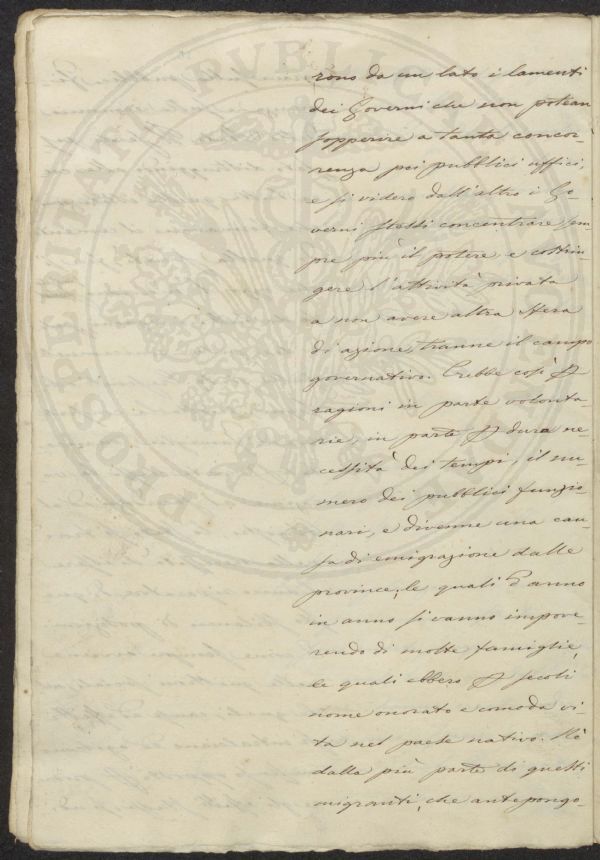 rono da un lato i lamenti
dei Governi che non potean
sopperire a tanta concor-
renza pei pubblici uffici,
e si videro dall'altro i Go-
verni stessi concentrare sem-
pre più il potere e costrin-
gere l'attività privata
a non avere altra sfera
di azione, tranne il campo
governativo. Crebbe così p
ragioni in parte volonta-
rie, in parte p dura ne-
cessità dei tempi, il nu-
mero dei pubblici funzio-
nari, e divenne una cau-
sa di emigrazione dalle
province, le quali d'anno
in anno si vanno impove-
rendo di molte famiglie,
le quali ebbero p secoli
nome onorato e comoda vi-
ta nel paese nativo. Nè
dalla più parte di questi
migranti, che antepongo-
PROSPERITATI PUBLICAE